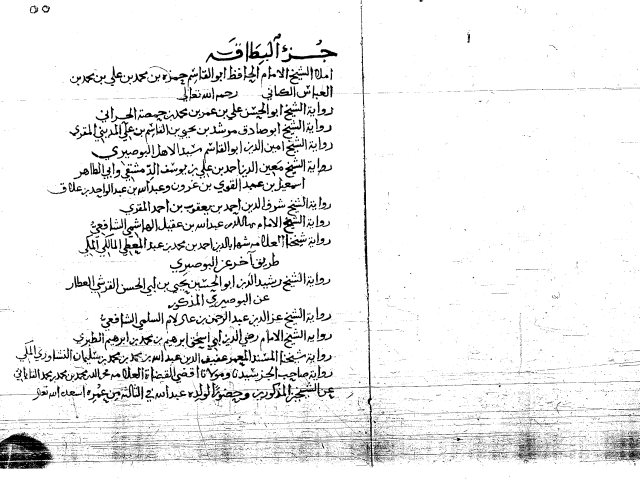 جزء البطاقة
املاء الشيخ الامام الحافظ ابو القاسم حمزه بن محمد بن علي بن محمد بن
العباس الكناني رحمه الله تعالى
رواية الشيخ ابو الحسن علي بن عمر بن محمد بن حمصة الحراني
رواية الشيخ ابو صادق مرشد بن يحيى بن القاسم بن علي المديني المقري
رواية الشيخ امين الدين ابو القاسم سيد الاهل البوصيري
رواية الشيخ معين الدين احمد بن علي بن يوسف الدمشقي وابي الطاهر
اسمعيل بن عبد القوي بن عزون وعبد الله بن عبد الواحد بن علاق
رواية الشيخ شرف الدين احمد بن يعقوب بن احمد المقري
رواية الشيخ الامام بهاء الدين عبد الله بن عقيل الهاشمي الشافعي
رواية شيخنا العلامه شهاب الدين احمد بن محمد بن عبد المعطي المالكي المكي
طريق آخر عن البوصيري
رواية الشيخ رشيد الدين ابو الحسين يحيى بن ابي الحسن القرشي العطار
عن البوصيري المذكور
رواية الشيخ عز الدين عبد الرحمن بن السلمي الشافعي
رواية الشيخ الامام رضي الدين ابي اسحق ابرهيم بن محمد بن ابرهيم الطبري
رواية شيخنا المسند المعمر عفيف الدين عبد الله بن محمد بن محمد بن سليمان النشاوري المكي
رواية صاحب الجزء سيدنا ومولانا اقضى القضاة العلامه محمد بن محمد
عن الشيخين المذكورين وحضورا لولده عبد الله في الثالثة من عمره اسعده الله تعالى